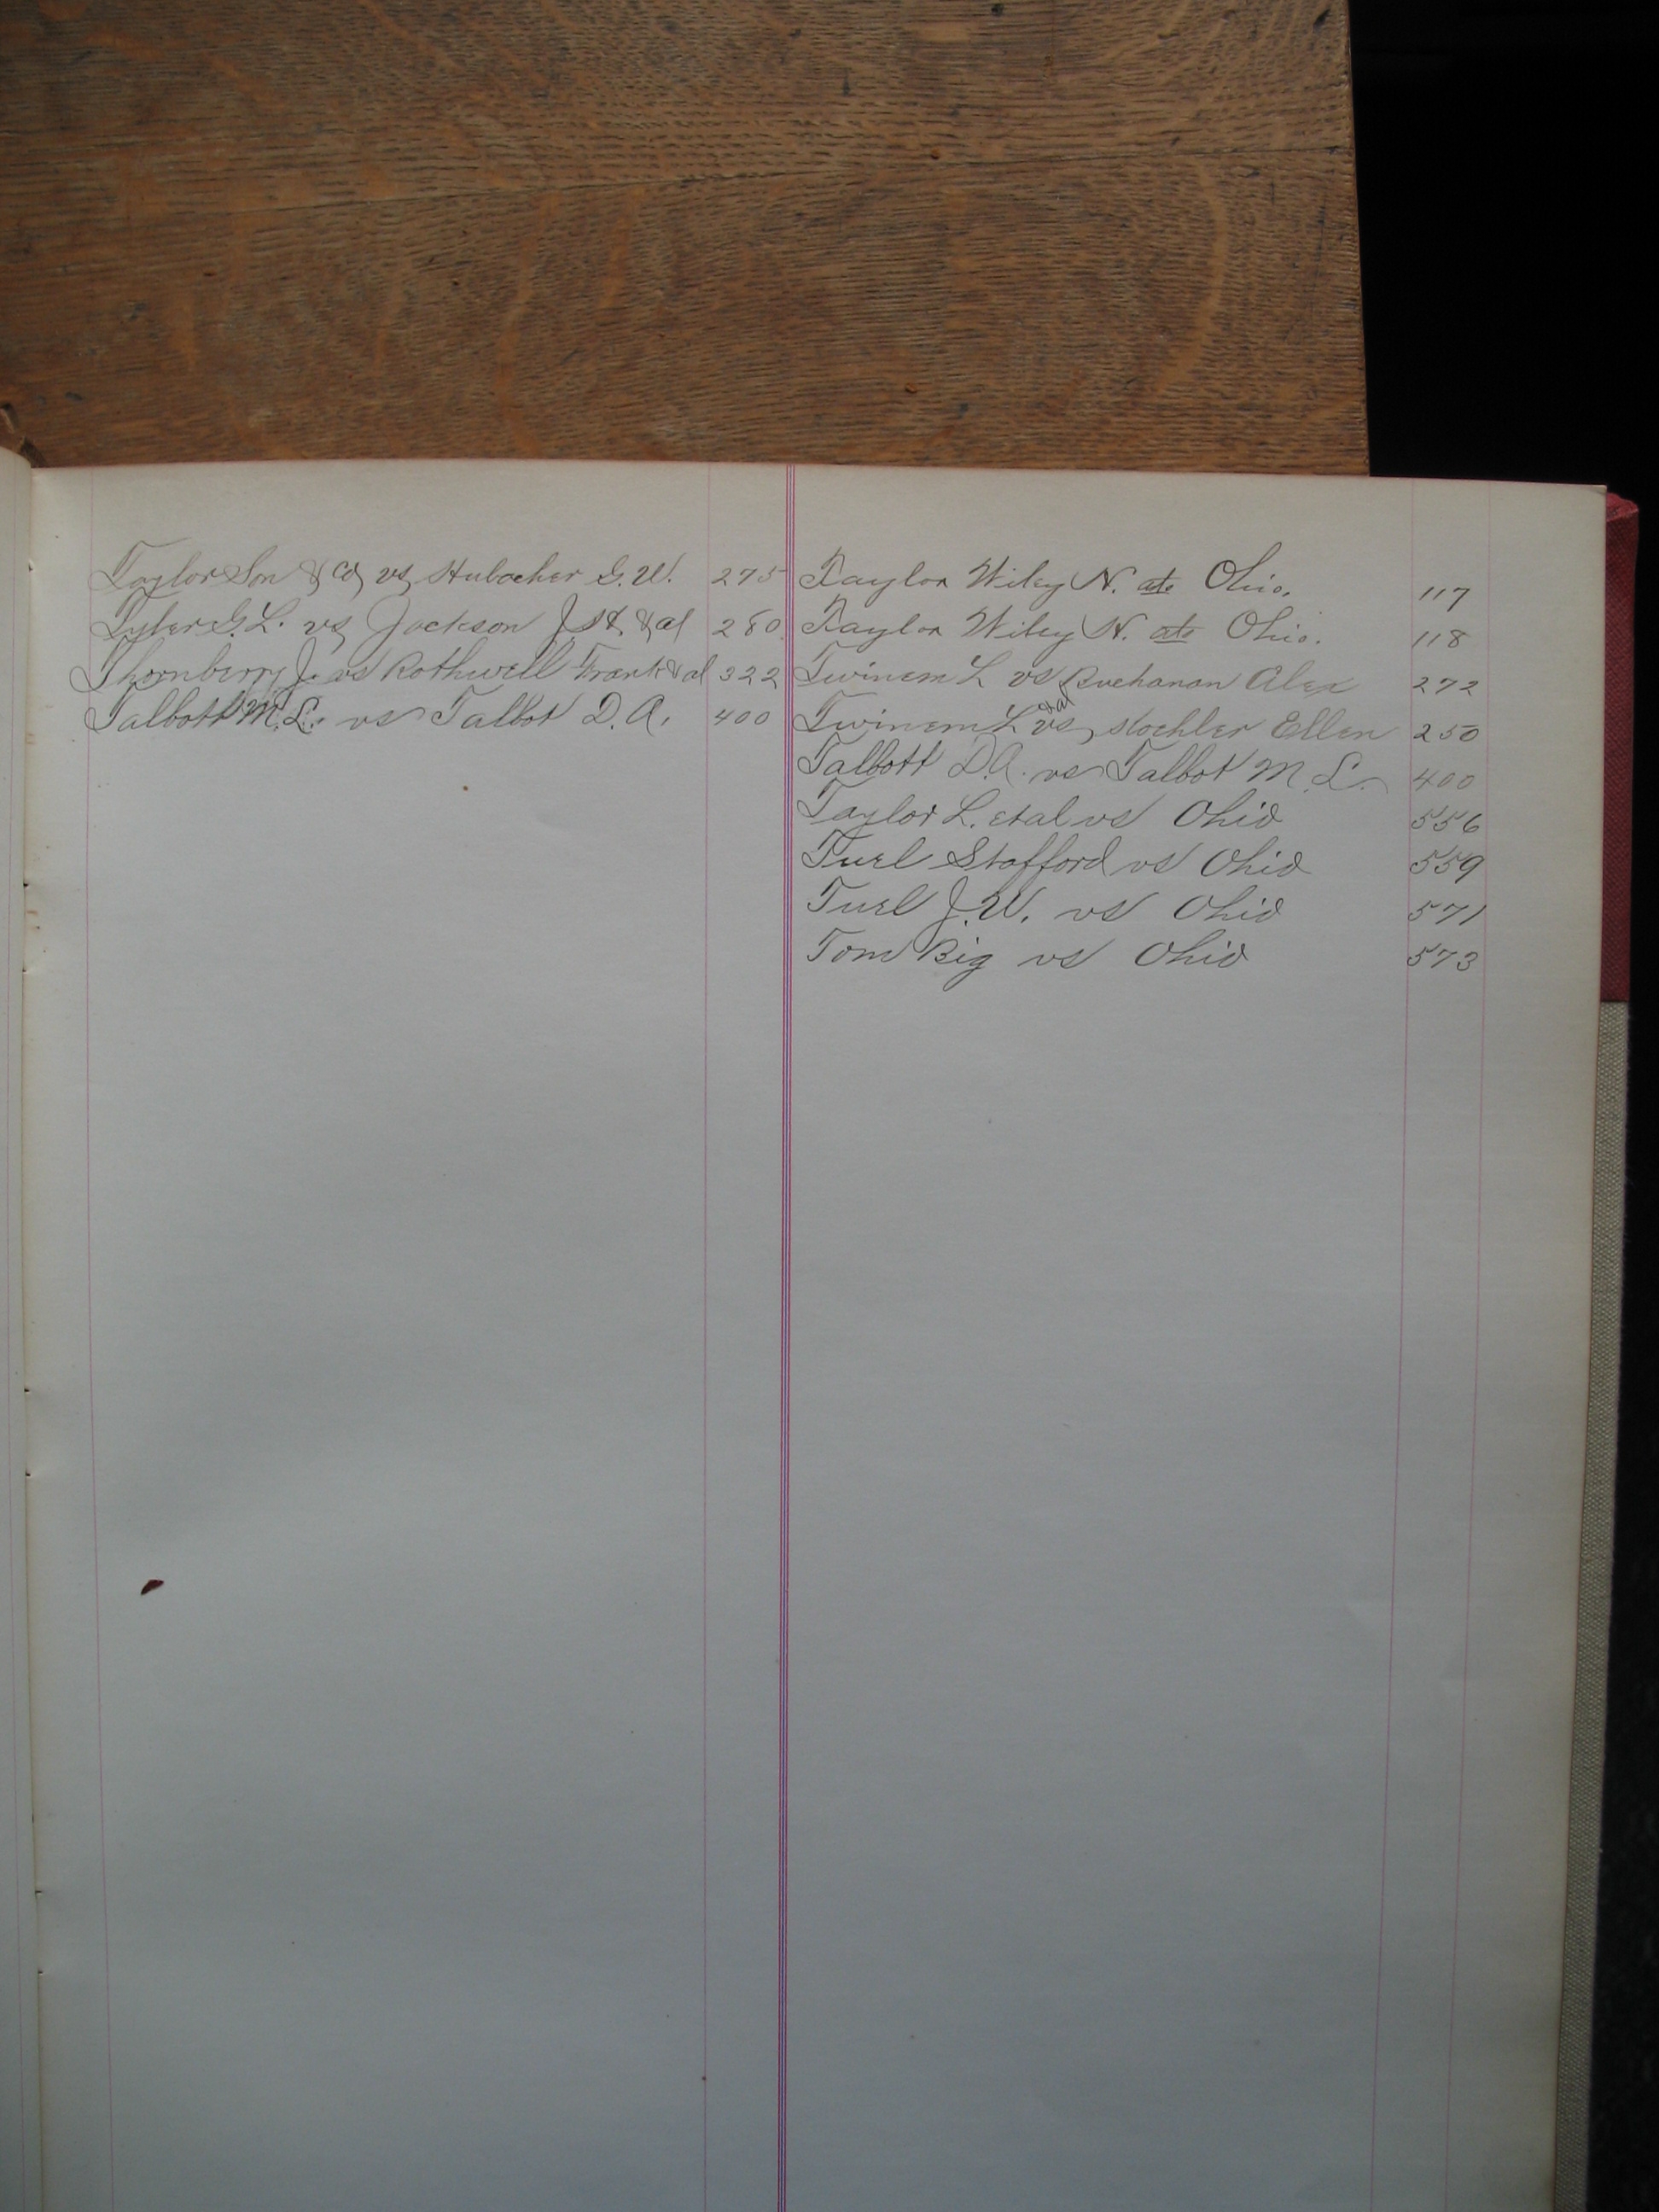 Taylor Son & Co vs Hubacher G. W. 275
Tyler G. L. vs Jackson J & al 280
Thornberry J. vs Rothwell Frank & al 322
Talbott M. L. vs Talbot D. A. 400
Taylor Wiley N. ats Ohio. 117
Taylor Wiley N. ats Ohio. 118
Twinem L vs Buchanan Alex 272
Twinem L & al vs Koehler Ellen 250
Talbott D. A. vs Talbot M. L. 400
Taylor L. et al vs Ohio 556
Turl Stafford vs Ohio 559
Turl J. W. vs Ohio 571
Tom Big vs Ohio 573